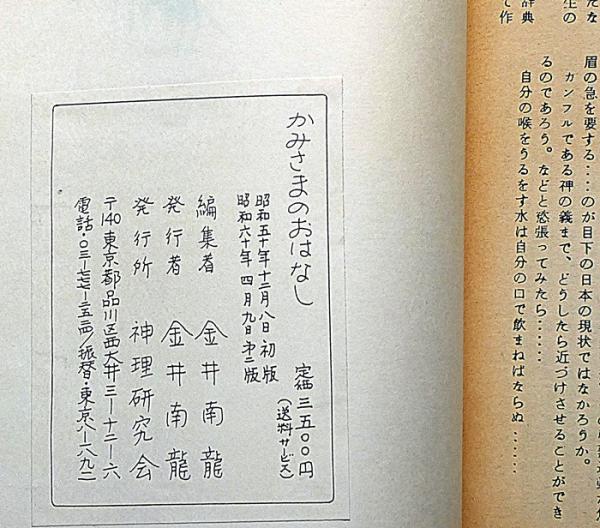 たな
生の
辞典
て作
眉の急を要する‥‥のが目下の日本の現状ではなかろうか。
カンフルである神の義まで、どうしたら近づけさせることができ
るのであろう。などと慾張ってみたら‥‥‥
自分の喉をうるをす水は自分の口で飲まねばならぬ‥‥‥
かみさまのおはなし
定価三五〇〇円
(送料サービス)
昭和五十年十二月八日初版
昭和六十年四月九日第二版
編集者 金井南龍
発行者 金井南龍
発行所 神理研究会
〒140東京都品川区西大井三ー十二ー六
電話・〇三ー七七
振替・東京八ー八九